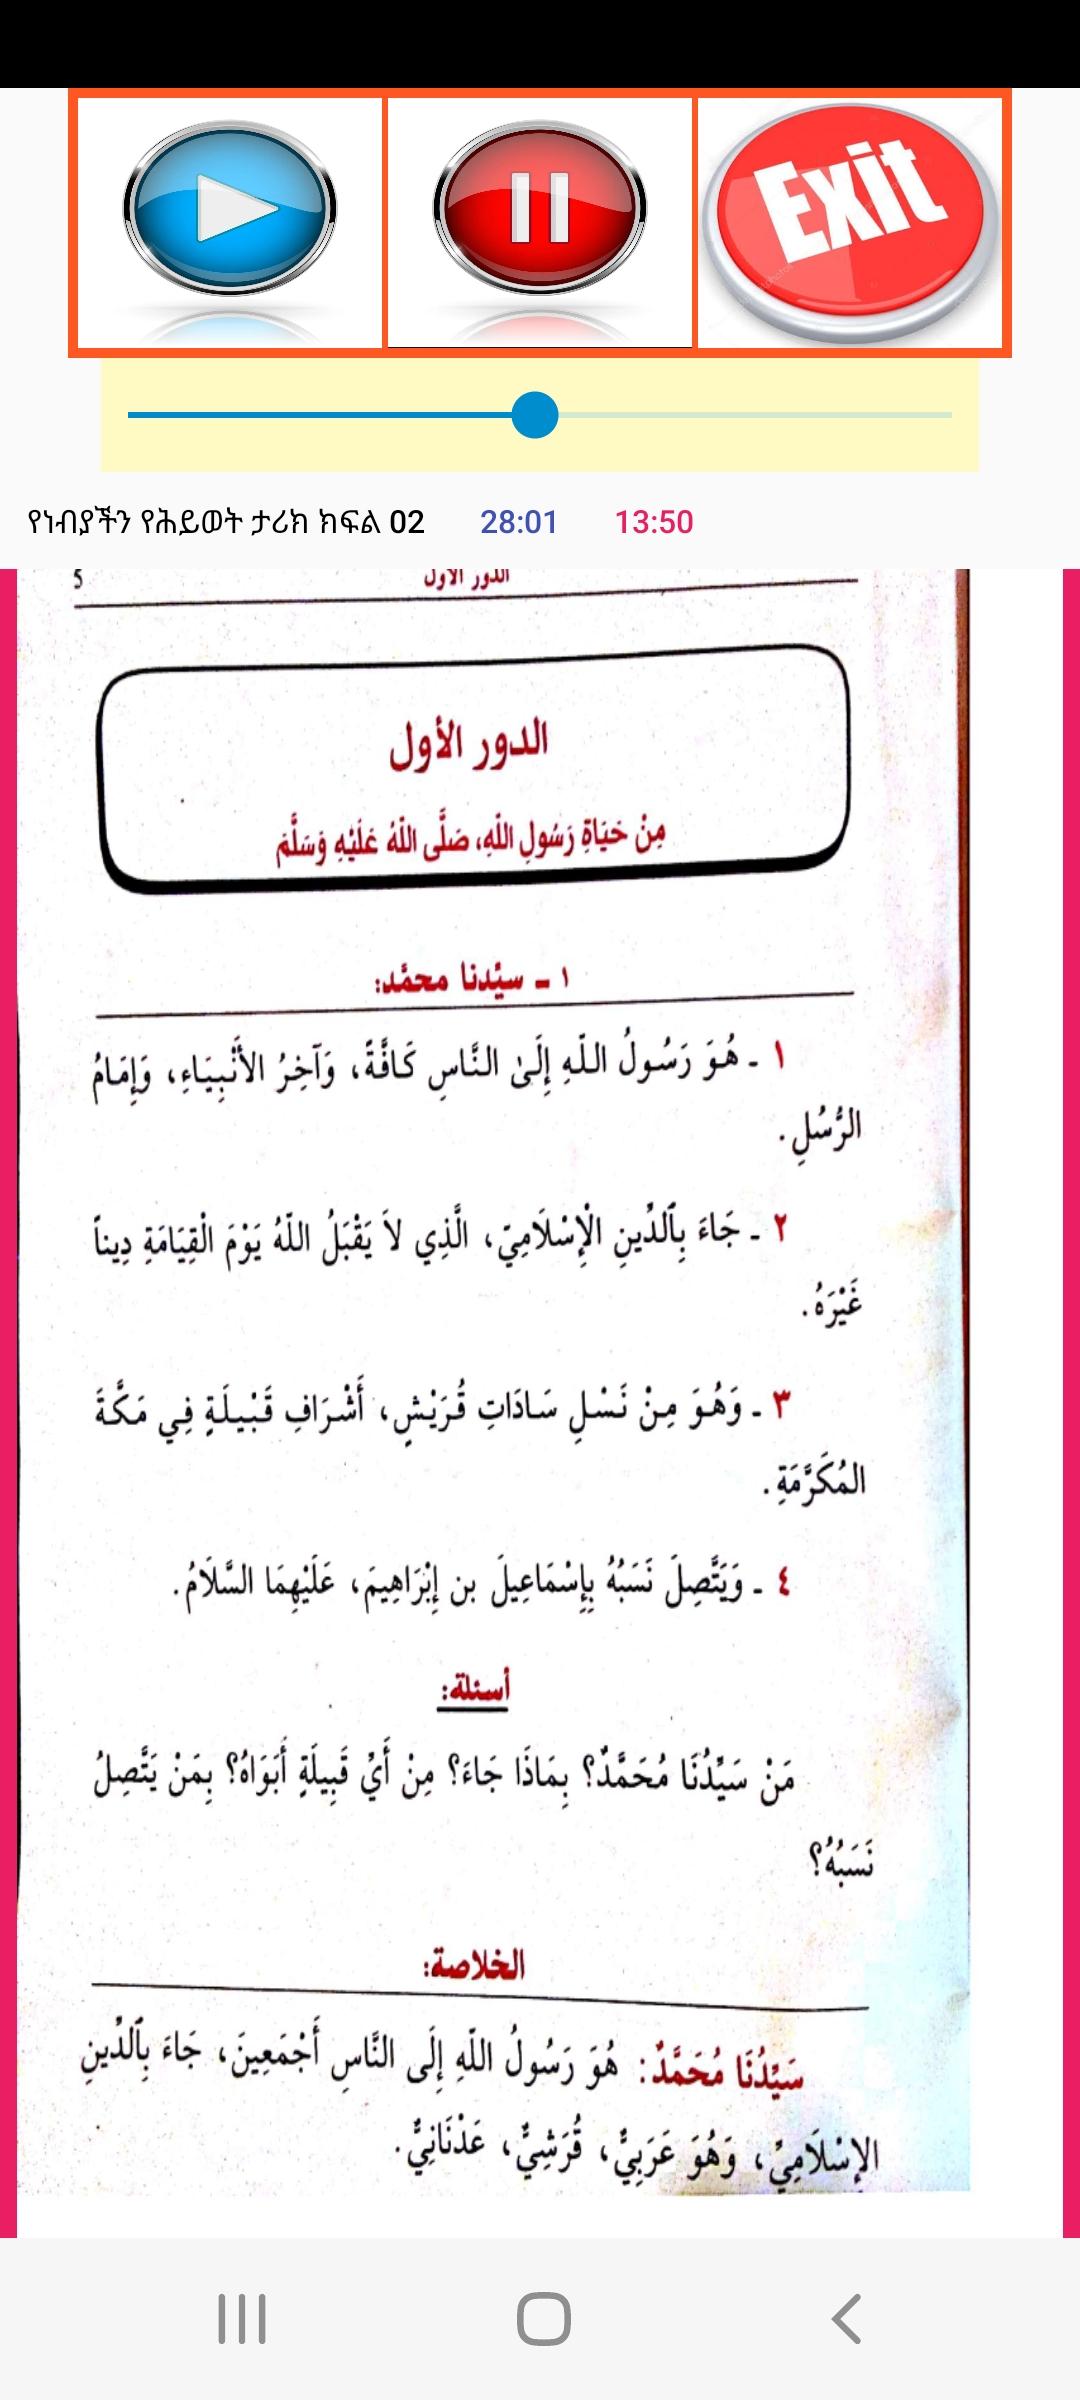 Exit
የነብያችን የሕይወት ታሪክ ክፍል 02 28:01 13:50
الدور الأول 5
الدور الأول
مِنْ حَيَاةِ رَسُولِ اللّهِ، صَلَّى اللّهُ عَلَيْهِ وَسَلَّمَ
١ ـ سيّدنا محمَّد:
١ ـ هُوَ رَسُولُ اللّهِ إِلَىٰ النَّاسِ كَافَّةً، وَآخِرُ الأَنْبِيَاءِ، وَإِمَامُ
الرُّسُلِ.
٢ ـ جَاءَ بِٱلدِّينِ الْإِسْلَامِيّ، الَّذِي لاَ يَقْبَلُ اللّهُ يَوْمَ الْقِيَامَةِ دِيناً
غَيْرَهُ.
٣ ـ وَهُوَ مِنْ نَسْلِ سَادَاتِ قُرَيْشٍ، أَشْرَافِ قَبْيلَةٍ فِي مَكَّةَ
المُكَرَّمَةِ.
٤ ـ وَيَتَّصِلَ نَسَبُهُ بِإِسْمَاعِيلَ بن إِبْرَاهِيمَ، عَلَيْهِمَا السَّلَامُ.
أسئلة:
مَنْ سَيِّدُنَا مُحَمَّدٌ؟ بِمَاذَا جَاءَ؟ مِنْ أَيِّ قَبِيلَةٍ أَبَوَاهُ؟ بِمَنْ يَتَّصِلُ
نَسَبُهُ؟
الخلاصة:
سَيِّدُنَا مُحَمَّدٌ: هُوَ رَسُولُ اللّهِ إِلَى النَّاسِ أَجْمَعِينَ، جَاءَ بِٱلدِّينِ
الإِسْلَامِيِّ، وَهُوَ عَرَبِيٌّ، قُرَشِيٌّ، عَدْنَانِيٌّ.